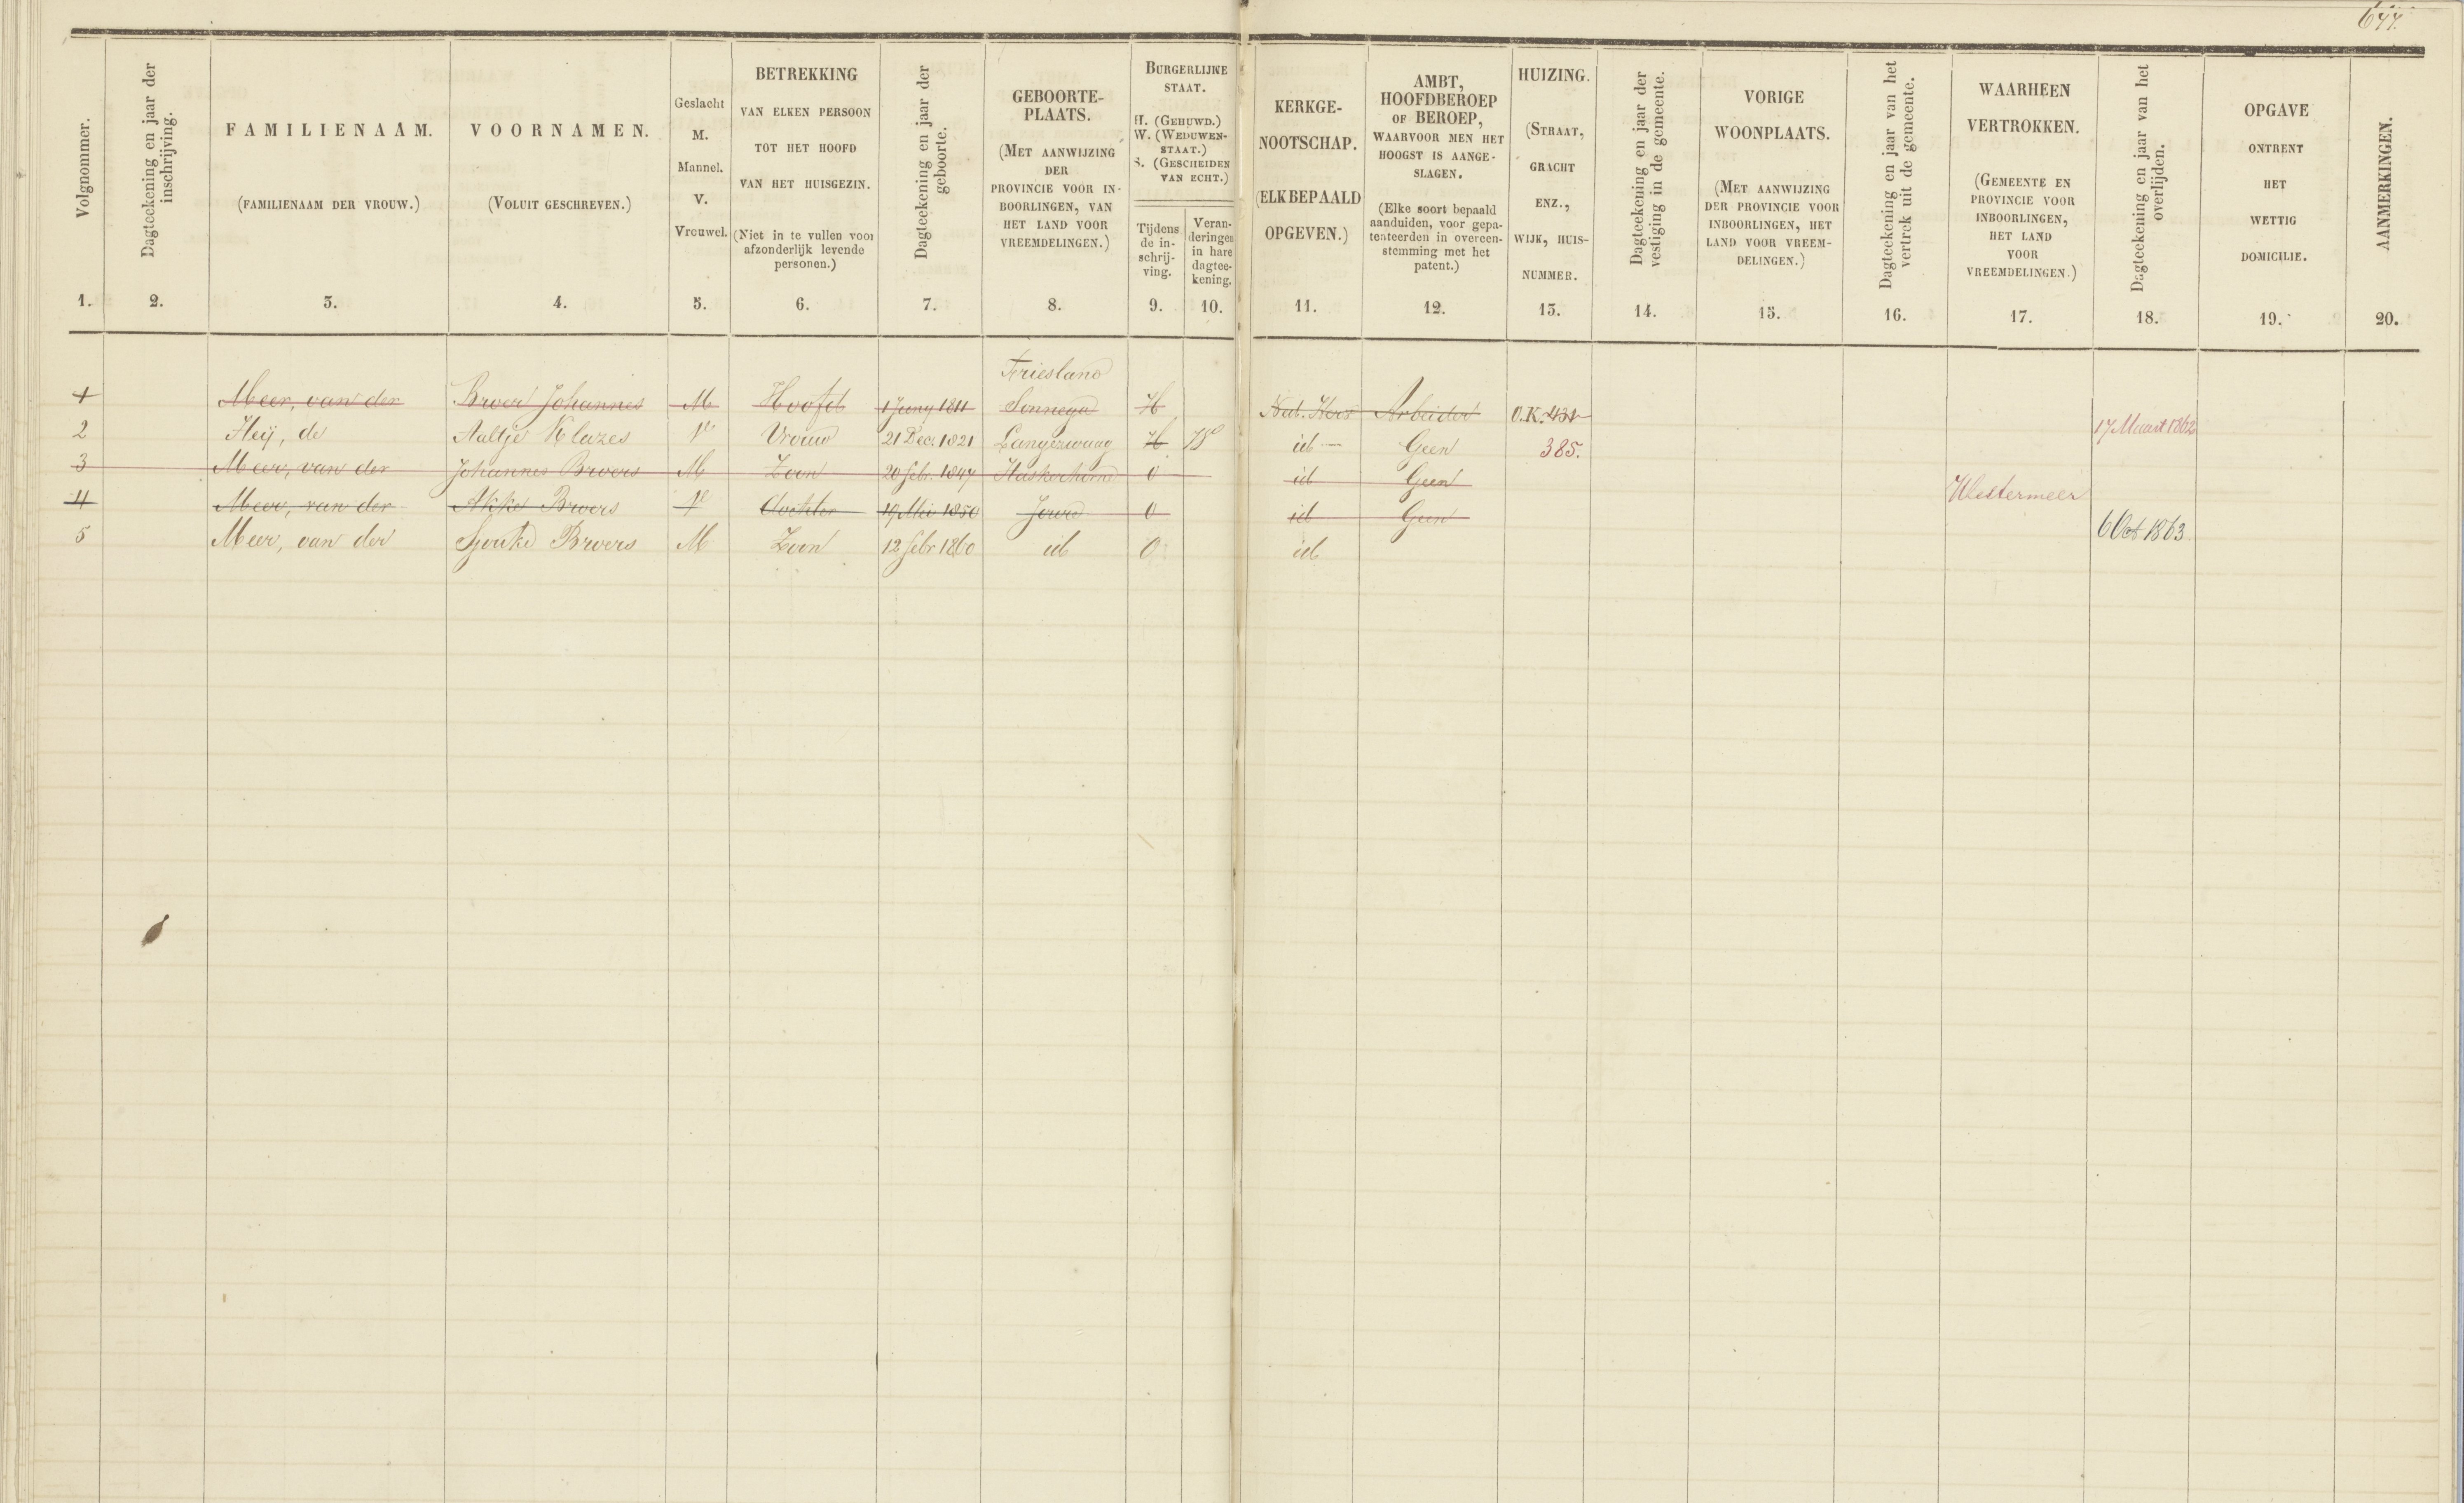 677.
Volgnommer.
1.
Dagteekening en jaar der
inschrijving.
2.
FAMILIENAAM.
(FAMILIENAAM DER VROUW.)
3.
VOORNAMEN.
(VOLUIT GESCHREVEN.)
4.
Geslacht
M.
Mannel.
V.
Vrouwel.
5.
BETREKKING
VAN ELKEN PERSOON
TOT HET HOOFD
VAN HET HUISGEZIN.
(Niet in te vullen voor
afzonderlijk levende
personen.)
6.
Dagteekening en jaar der
geboorte.
7.
GEBOORTE-
PLAATS.
(MET AANWIJZING
DER
PROVINCIE VOOR IN-
BOORLINGEN, VAN
HET LAND VOOR
VREEMDELINGEN.)
8.
BURGERLIJKE
STAAT.
H. (GEHUWD.)
W. (WEDUWEN-
STAAT.)
S. (GESCHEIDEN
VAN ECHT.)
Tijdens
de in-
schrij-
ving.
9.
Veran-
deringen
in hare
dagtee-
kening.
10.
KERKGE-
NOOTSCHAP.
(ELK BEPAALD
OPGEVEN.)
11.
AMBT,
HOOFDBEROEP
OF BEROEP,
WAARVOOR MEN HET
HOOGST IS AANGE-
SLAGEN.
(Elke soort bepaald
aanduiden, voor gepa-
tenteerden in overeen-
stemming met het
patent.)
12.
HUIZING.
(STRAAT,
GRACHT
ENZ.,
WIJK, HUIS-
NUMMER.
13.
Dagteekening en jaar der
vestiging in de gemeente.
14.
VORIGE
WOONPLAATS.
(MET AANWIJZING
DER PROVINCIE VOOR
INBOORLINGEN, HET
LAND VOOR VREEM-
DELINGEN.)
15.
Dagteekening en jaar van het
vertrek uit de gemeente.
16.
WAARHEEN
VERTROKKEN.
(GEMEENTE EN
PROVINCIE VOOR
INBOORLINGEN,
HET LAND
VOOR
VREEMDELINGEN.)
17.
Dagteekening en jaar van het
overlijden.
18.
OPGAVE
ONTRENT
HET
WETTIG
DOMICILIE.
19.
AANMERKINGEN.
20.
Friesland
1 Meer, van der Broer Johannes M Hoofd 1 Juny 1811 Sonnega H Ned. Herv Arbeider O.K. 431
2 Heij, de Aaltje Klazes Vr Vrouw 21 Dec. 1821 Langezwaag H id — Geen 385. 17 Maart 1862
3 Meer, van der Johannes Broers M Zoon 20 febr. 1847 Haskerhorne O id Geen Westermeer
4 Meer, van der Akke Broers Vr Dochter 19 Mei 1850 Joure O id Geen 6 Oct 1863.
5 Meer, van der Sjouke Broers M Zoon 12 febr 1860 id O id